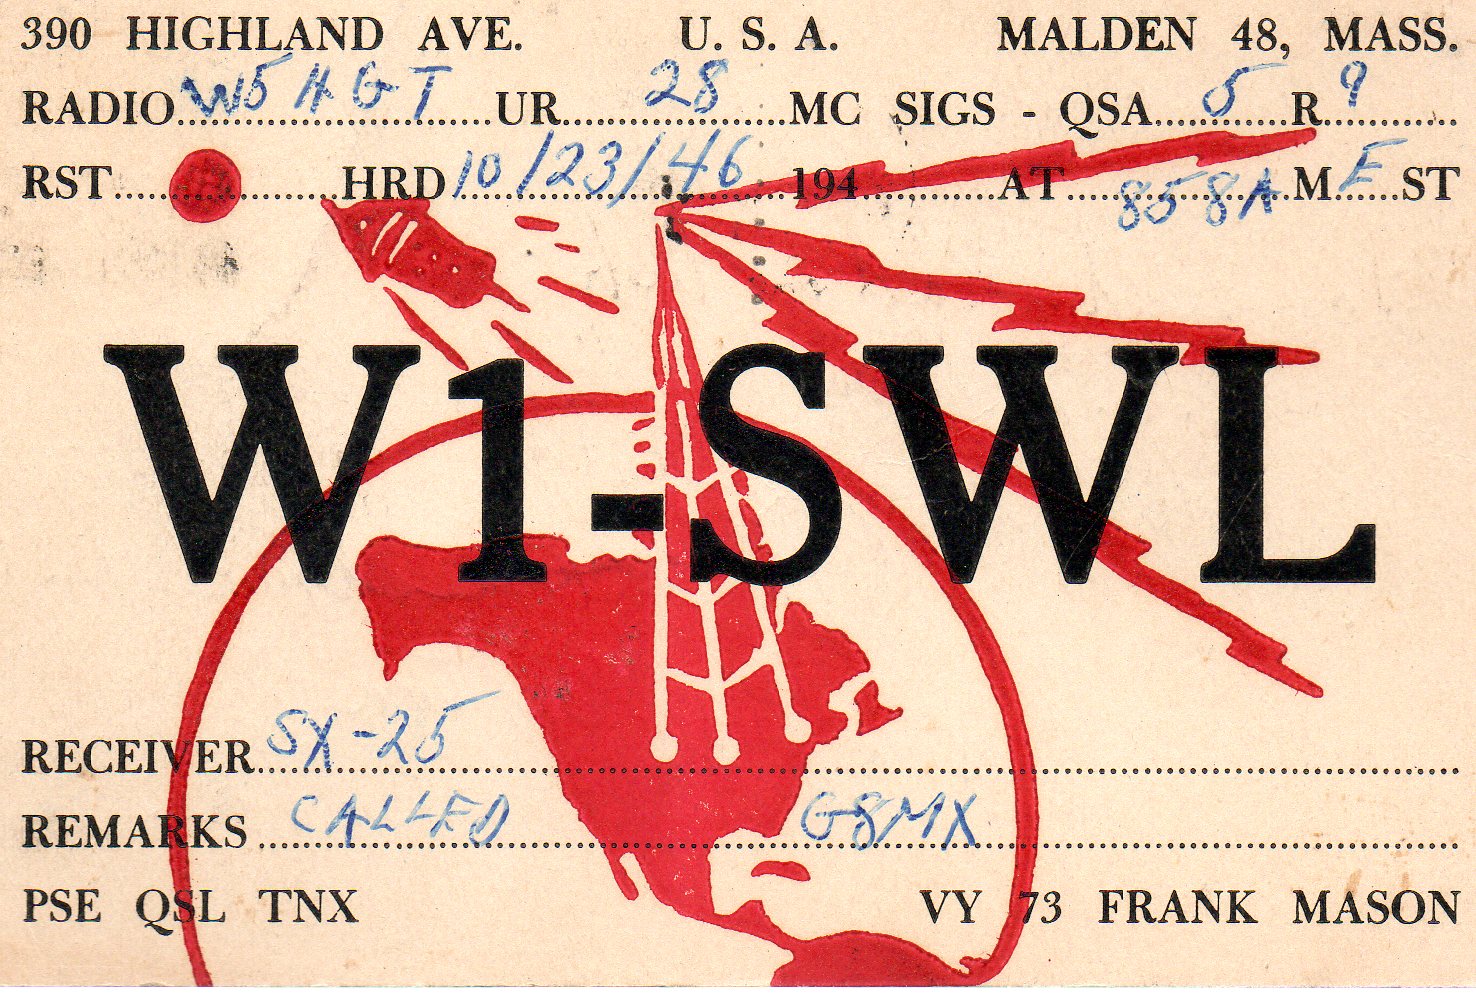 390 HIGHLAND AVE. U. S. A. MALDEN 48, MASS.
RADIO W5HGT UR 28 MC SIGS - QSA 5 R 9
RST HRD 10/23/46 194 AT 858A M E ST
W1-SWL
RECEIVER SX-25
REMARKS CALLED G8MX
PSE QSL TNX VY 73 FRANK MASON